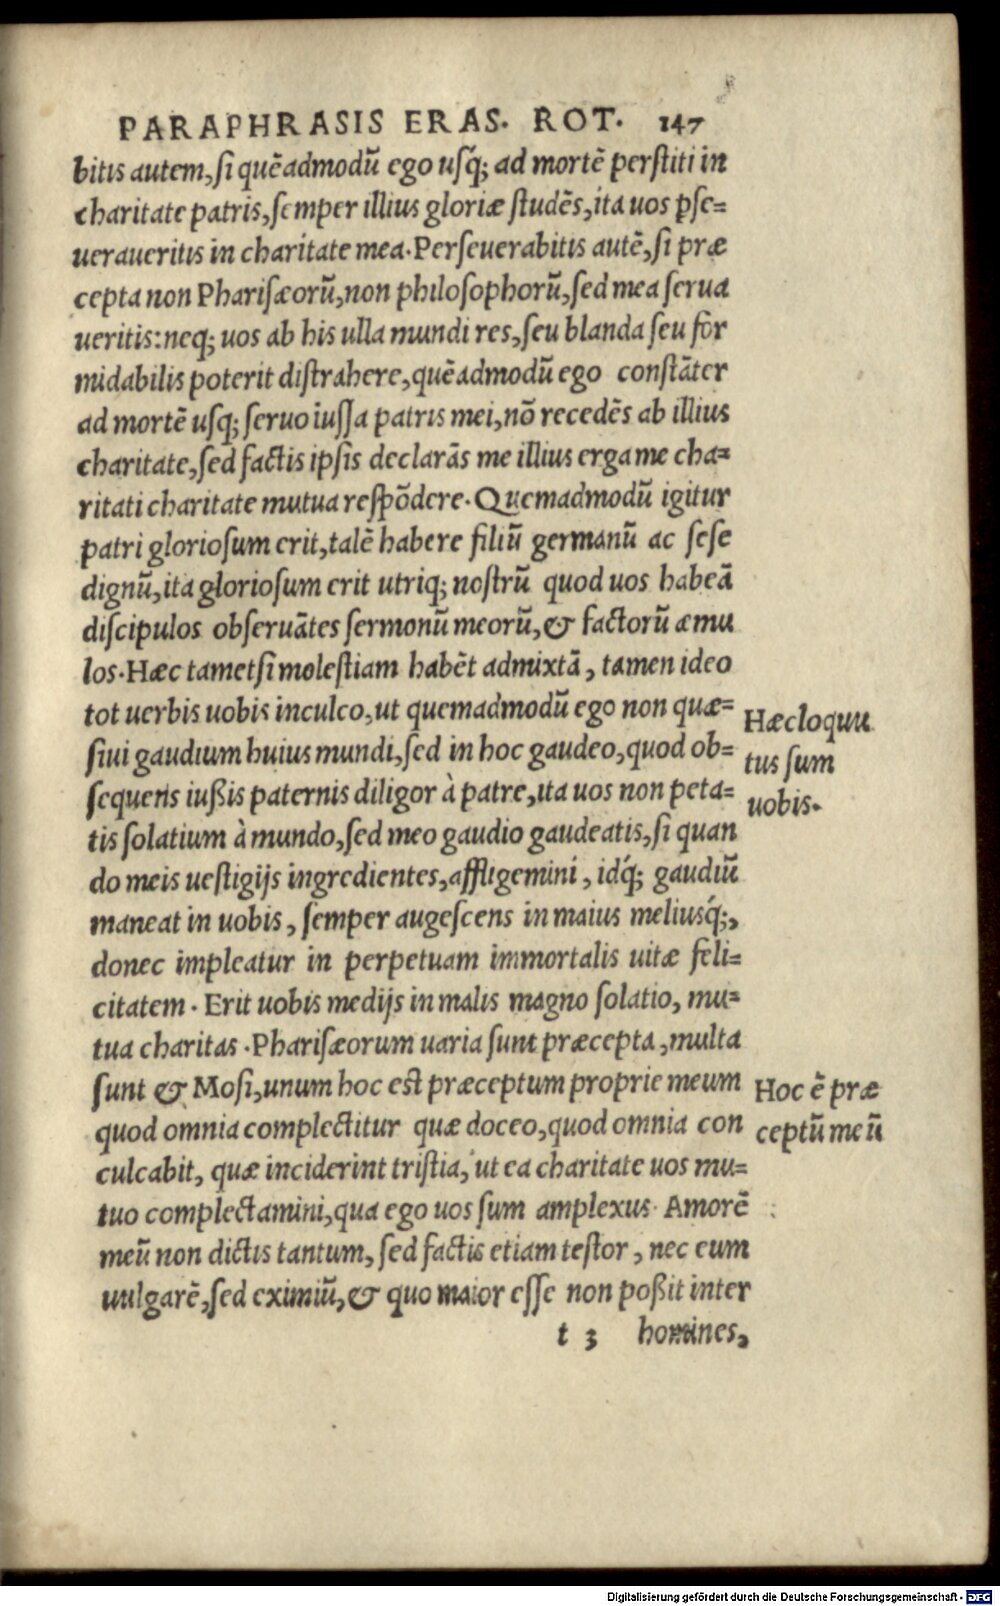 PARAPHRASIS ERAS. ROT. 147
bitis autem, si quẽadmodũ ego usq́; ad mortẽ perstiti in
charitate patris, semper illius gloriæ studẽs, ita uos pse=
ueraueritis in charitate mea. Perseuerabitis autẽ, si præ
cepta non Pharisæorũ, non philosophorũ, sed mea serua
ueritis: neq; uos ab his ulla mundi res, seu blanda seu for
midabilis poterit distrahere, quẽadmodũ ego constãter
ad mortẽ usq; seruo iussa patris mei, nõ recedẽs ab illius
charitate, sed factis ipsis declarãs me illius erga me cha=
ritati charitate mutua respõdere. Quemadmodũ igitur
patri gloriosum erit, talẽ habere filiũ germanũ ac sese
dignũ, ita gloriosum erit utriq; nostrũ quod uos habeã
discipulos obseruãtes sermonũ meorũ, & factorũ æmu
los. Hæc tametsi molestiam habẽt admixtã, tamen ideo
tot uerbis uobis inculco, ut quemadmodũ ego non quæ=
siui gaudium huius mundi, sed in hoc gaudeo, quod ob=
sequens iußis paternis diligor à patre, ita uos non peta=
tis solatium à mundo, sed meo gaudio gaudeatis, si quan
do meis uestigijs ingredientes, affligemini, idq́; gaudiũ
maneat in uobis, semper augescens in maius meliusq́;,
donec impleatur in perpetuam immortalis uitæ feli=
citatem. Erit uobis medijs in malis magno solatio, mu=
tua charitas. Pharisæorum uaria sunt præcepta, multa
sunt & Mosi, unum hoc est præceptum proprie meum
quod omnia complectitur quæ doceo, quod omnia con
culcabit, quæ inciderint tristia, ut ea charitate uos mu=
tuo complectamini, qua ego uos sum amplexus. Amorẽ
meũ non dictis tantum, sed factis etiam testor, nec eum
uulgarẽ, sed eximiũ, & quo maior esse non poßit inter
t 3 homines,
Hæc loquu
tus sum
uobis.
Hoc ẽ præ
ceptũ meũ
Digitalisierung gefördert durch die Deutsche Forschungsgemeinschaft - DFG